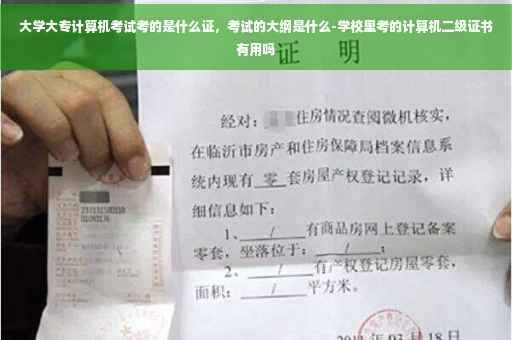 大学大专计算机考试考的是什么证，考试的大纲是什么-学校里考的计算机二级证书
有用吗
证 明
经对：住房情况查阅微机核实，
在临沂市房产和住房保障局档案信息系
统内现有 零 套房屋产权登记记录，详
细信息如下：
1、 / 有商品房网上登记备案
零套，坐落位于： / ；
2、 / 有产权登记房屋零套，
面积： / 平方米。
03月18日